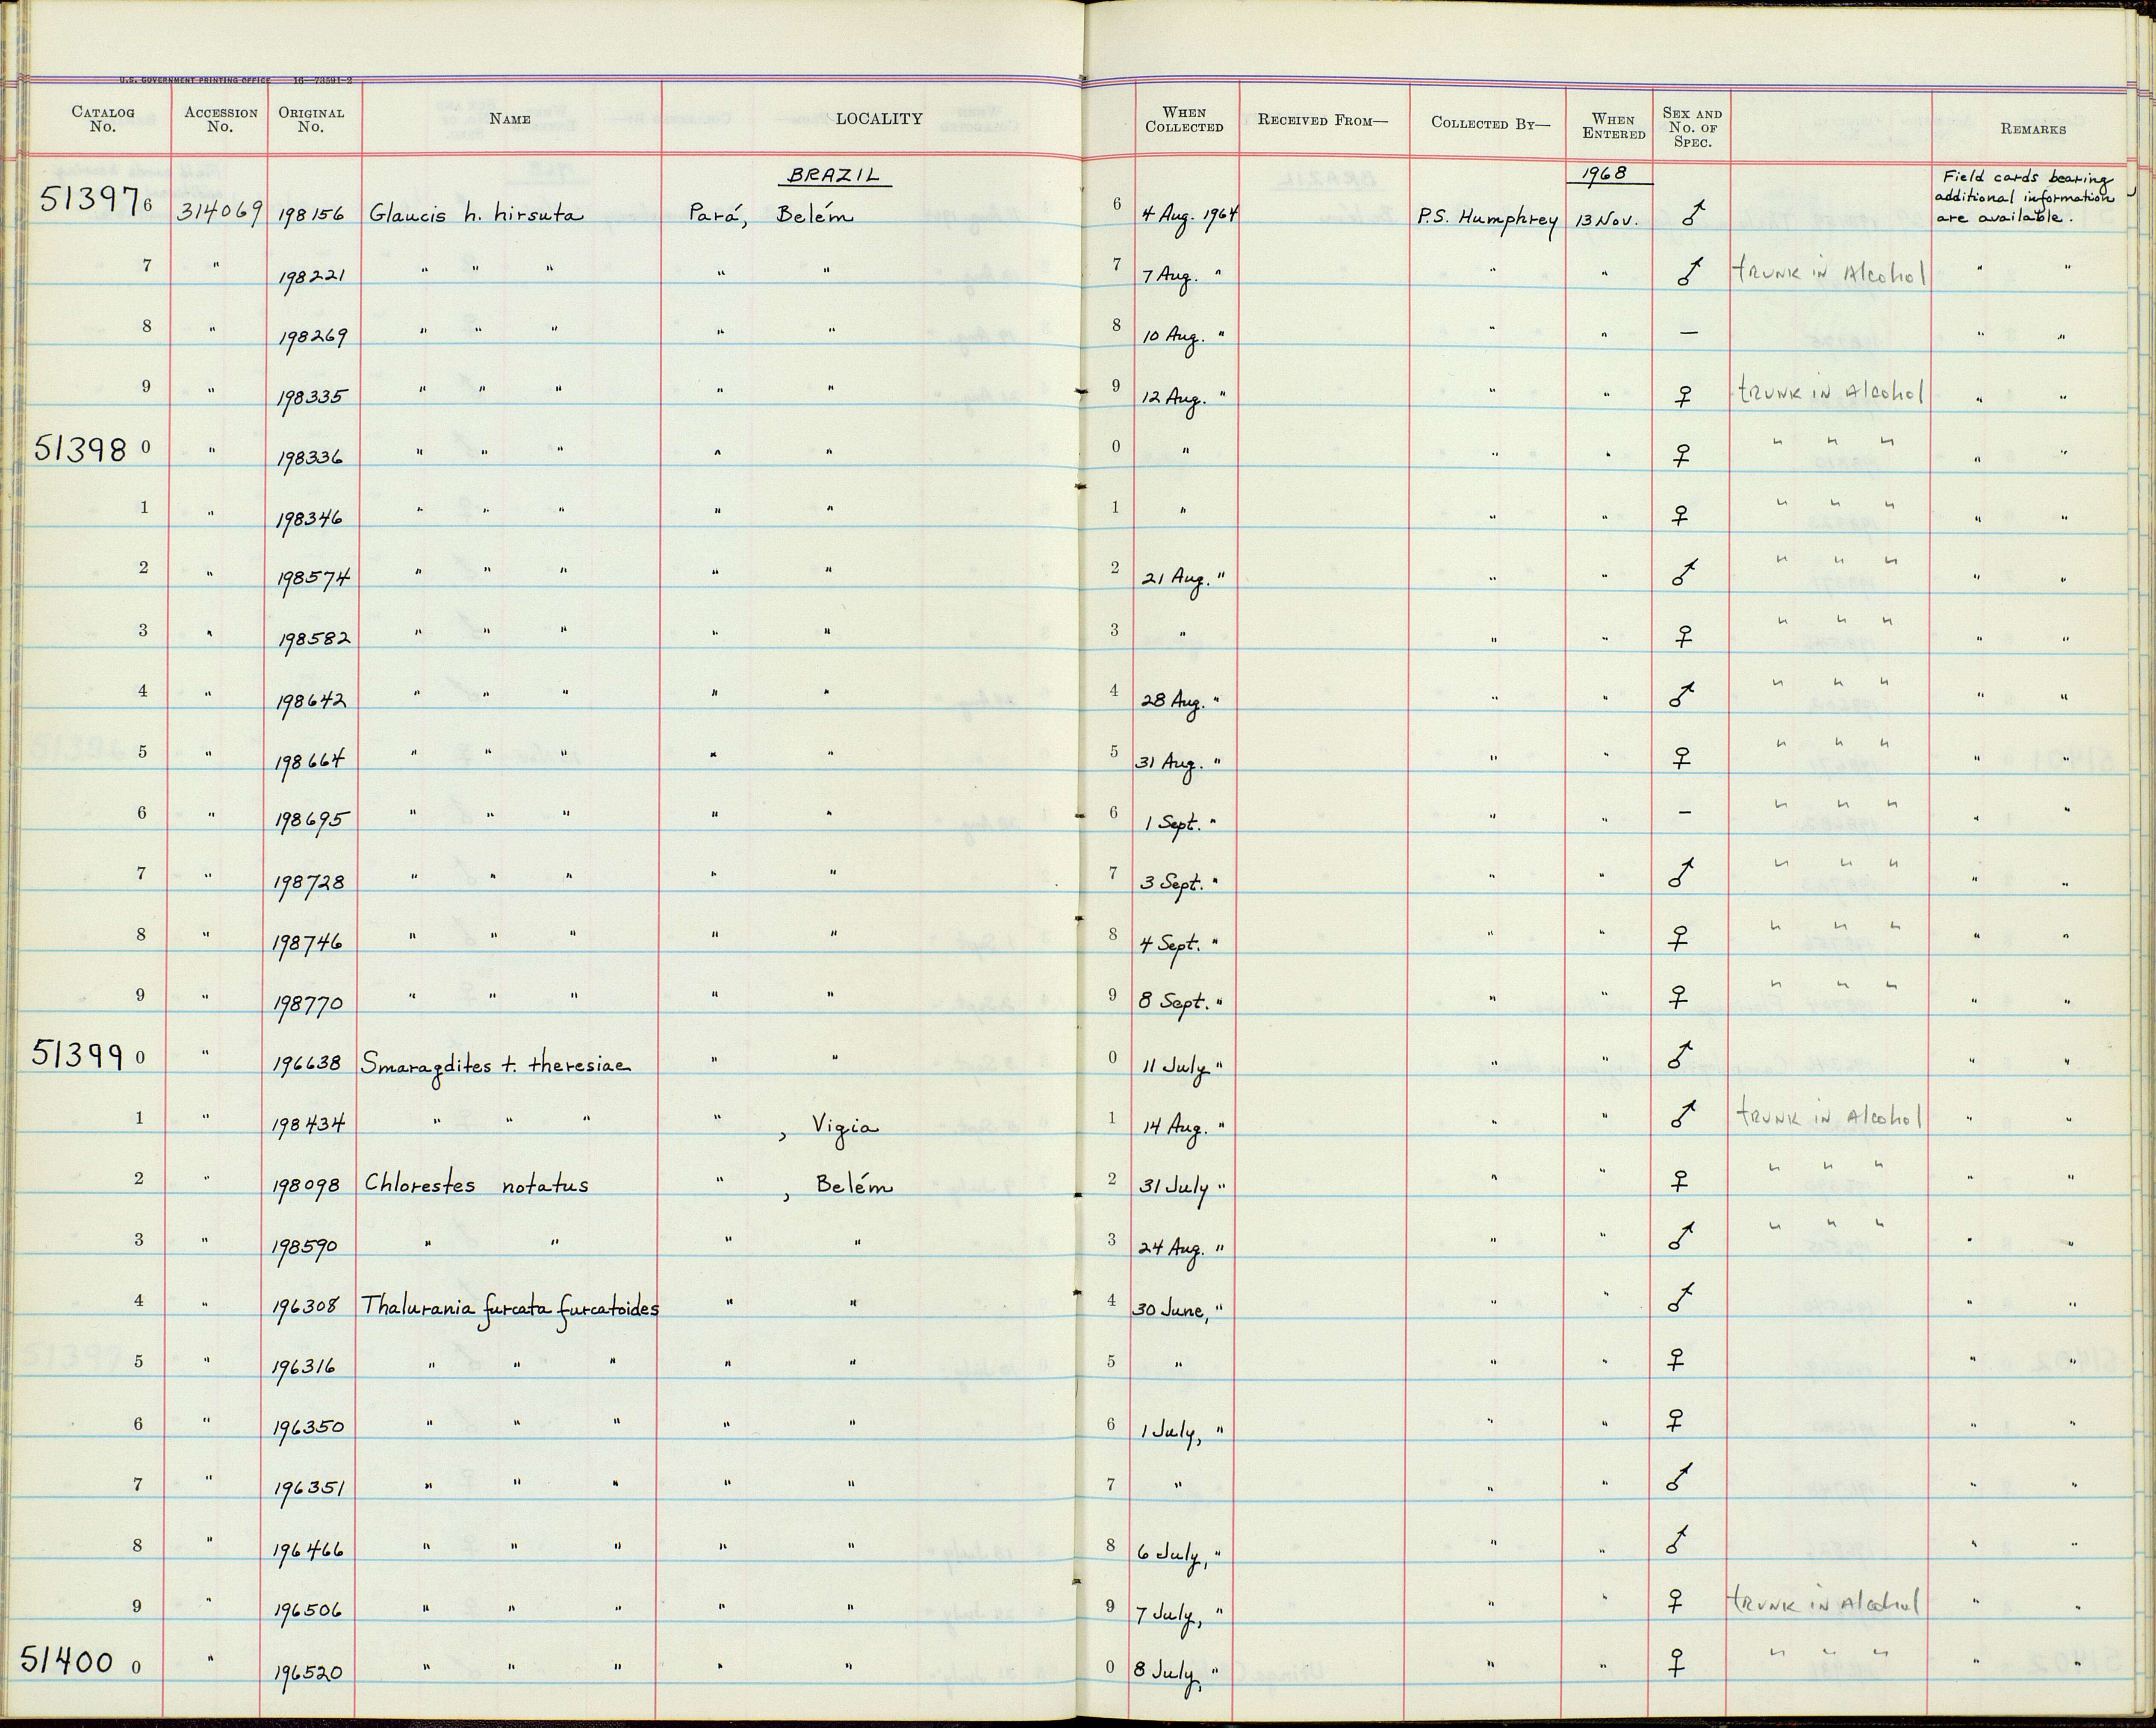 U.S. GOVERNMENT PRINTING OFFICE 16—73591-2
CATALOG No. ACCESSION No. ORIGINAL No. NAME LOCALITY WHEN COLLECTED RECEIVED FROM— COLLECTED BY— WHEN ENTERED SEX AND No. OF SPEC. REMARKS
BRAZIL 1968
513976 314069 198156 Glaucis h. hirsuta Pará, Belém 6 4 Aug. 1964 P.S. Humphrey 13 Nov. ♂ Field cards bearing additional information are available.
7 " 198221 " " " " " 7 7 Aug. " " " ♂ trunk in Alcohol " "
8 " 198269 " " " " " 8 10 Aug. " " " — " "
9 " 198335 " " " " " 9 12 Aug. " " " ♀ trunk in Alcohol " "
513980 " 198336 " " " " " 0 " " " ♀ " " " " "
1 " 198346 " " " " " 1 " " " ♀ " " " " "
2 " 198574 " " " " " 2 21 Aug. " " " ♂ " " " " "
3 " 198582 " " " " " 3 " " " ♀ " " " " "
4 " 198642 " " " " " 4 28 Aug. " " " ♂ " " " " "
5 " 198664 " " " " " 5 31 Aug. " " " ♀ " " " " "
6 " 198695 " " " " " 6 1 Sept. " " " — " " " " "
7 " 198728 " " " " " 7 3 Sept. " " " ♂ " " " " "
8 " 198746 " " " " " 8 4 Sept. " " " ♀ " " " " "
9 " 198770 " " " " " 9 8 Sept. " " " ♀ " " " " "
513990 " 196638 Smaragdites t. theresiae " " 0 11 July " " " ♂ " "
1 " 198434 " " " " , Vigia 1 14 Aug. " " " ♂ trunk in Alcohol " "
2 " 198098 Chlorestes notatus " , Belém 2 31 July " " " ♀ " " " " "
3 " 198590 " " " " 3 24 Aug. " " " ♂ " " " " "
4 " 196308 Thalurania furcata furcatoides " " 4 30 June, " " " ♂ " "
5 " 196316 " " " " " 5 " " " ♀ " "
6 " 196350 " " " " " 6 1 July, " " " ♀ " "
7 " 196351 " " " " " 7 " " " ♂ " "
8 " 196466 " " " " " 8 6 July, " " " ♂ " "
9 " 196506 " " " " " 9 7 July, " " " ♀ trunk in Alcohol " "
514000 " 196520 " " " " " 0 8 July, " " " ♀ " " " " "